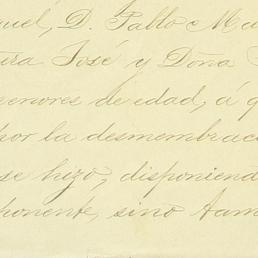 guel, D. Pablo Ma
ra José y Doña
menores de edad, á q
por la desmembrac
se hizo, disponiend
ponente, sino tam